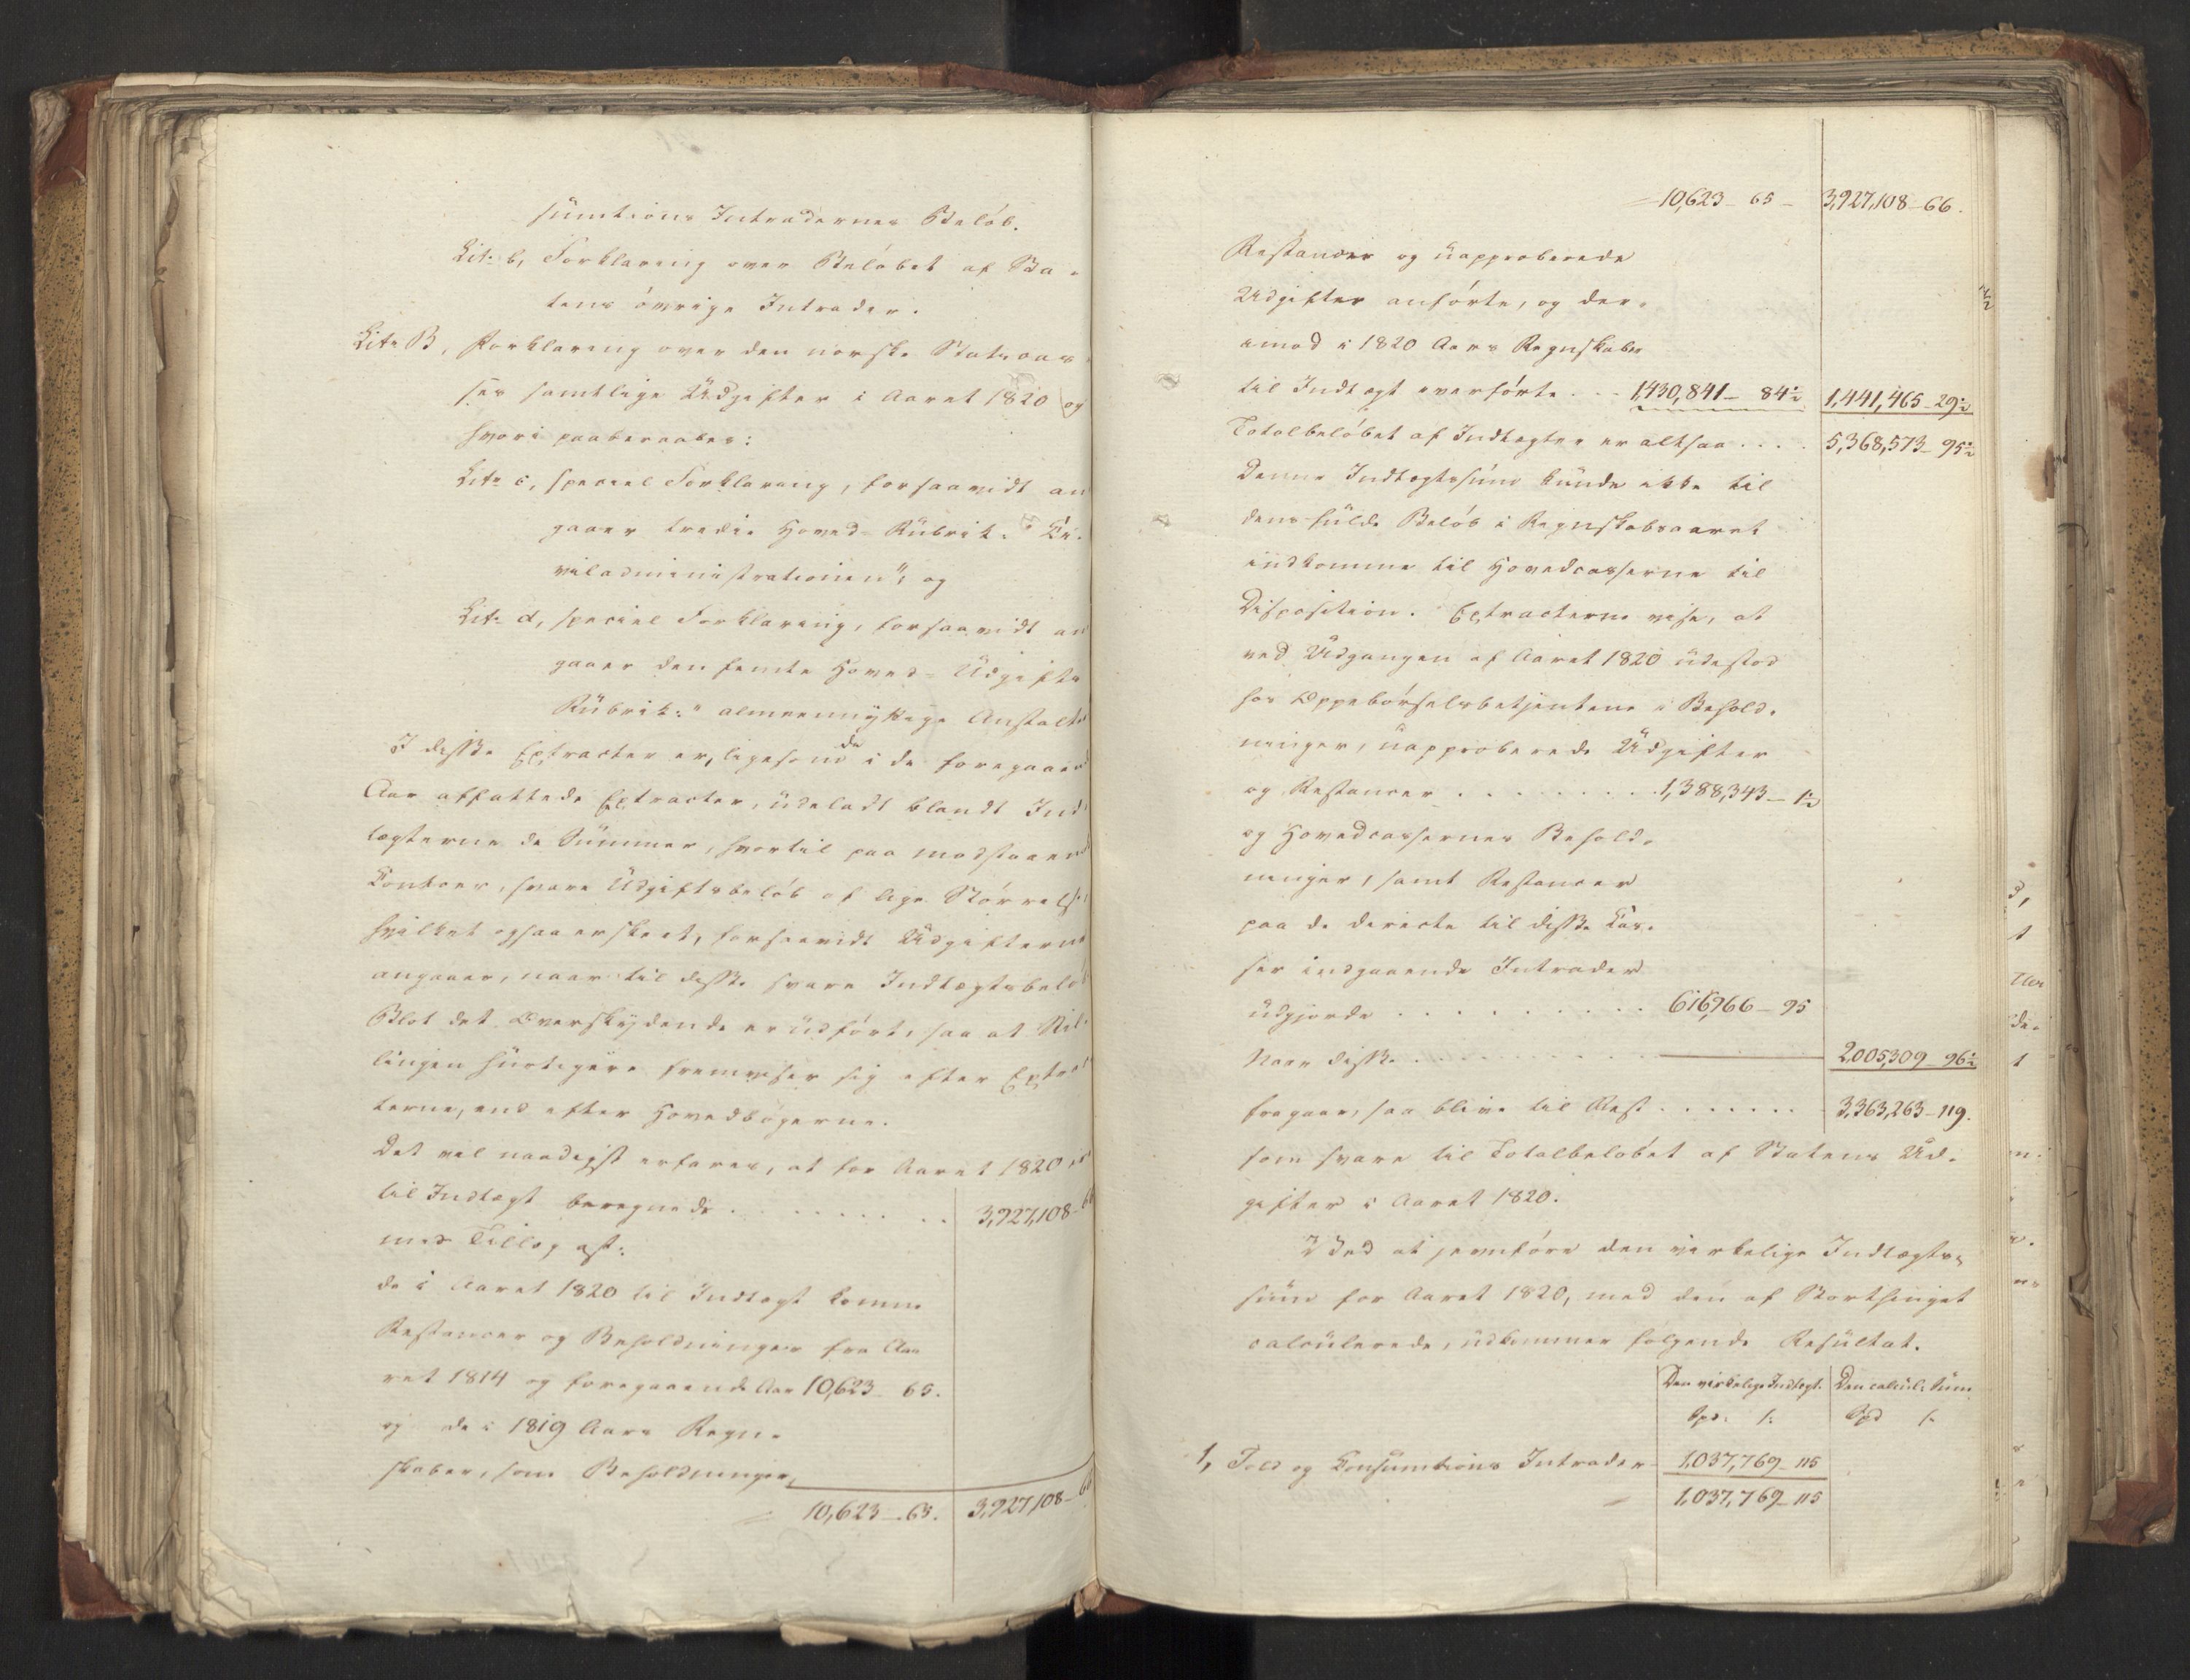 sumtions Intradernes Beløb.
Litr b, Forklaring over Beløbet af Sta-
tens øvrige Intrader.
Litr B, Forklaring over den norske Statscas-
ses samtlige Udgifter i Aaret 1820 og
hvori paaberaabes:
Litr c, speciel Forklaring, forsaavidt an
gaaer tredie Hoved-Rubrik: "Ci-
viladministrationen", og
Litr d, speciel Forklaring, forsaavidt an
gaaer den femte Hoved-Udgifts
Rubrik: "almeennyttige Anstalter
I disse Extracter er, ligesom i de foregaaende
Aar affattede Extracter, udeladt blandt Ind
tægterne de Summer, hvortil paa modstaaende
Contoer, svare Udgiftsbeløb af lige Størrelse
hvilket ogsaa er skeet, forsaavidt Udgifterne
angaaer, naar til disse svare Indtægtsbeløb
Blot det Overskydende er udført, saa at Stil-
lingen hurtigere fremviser sig efter Extrac
terne, end efter Hovedbøgerne.
Det vil naadigst erfares, at for Aaret 1820 er
til Indtægt beregnede . . . . . . . . 3,927,108 - 66
med Tillæg af:
de i Aaret 1820 til Indtægt komne
Restancer og Beholdninger fra Aa
ret 1814 og foregaaende Aar 10,623 - 65.
og de i 1819 Aars Regn-
skaber, som Beholdninger,
10,623 - 65. 3,927,108 - 66
10,623 - 65 - 3,927,108 - 66.
Restancer og uapproberede
Udgifter anførte, og der-
imod i 1820 Aars Regnskaber
til Indtægt overførte . . . 1,430,841 - 84½ 1,441,465 - 29½
Totalbeløbet af Indtægten er altsaa . . . . 5,368,573 - 95½
Denne Indtægtssum kunde ikke til
dens fulde Beløb i Regnskabsaaret
indkomme til Hovedcasserne til
Disposition. Extracterne vise, at
ved Udgangen af Aaret 1820 udestod
hos Oppebørselsbetjentene i Behold-
ninger, uapproberede Udgifter
og Restancer . . . . . . . . 1,388,343 - 1½
og Hovedcassernes Behold-
ninger, samt Restancer
paa de directe til disse Cas-
ser indgaaende Intrader
udgjorde . . . . . . . . . 616,966 - 95
Naar disse . . . . . . . . 2,005,309 - 96½
fragaae, saa blive til Rest . . . . . . . 3,363,263 - 119.
som svare til Totalbeløbet af Statens Ud-
gifter i Aaret 1820.
Ved at jevnføre den virkelige Indtægts-
sum for Aaret 1820, med den af Storthinget
calculerede, udkommer følgende Resultat.
Den virkelige Indtægt. Den calcul: Sum
Spd: s: Spd s:
1, Told og Consumtions Intrader 1,037,769 - 115
1,037,769 - 115